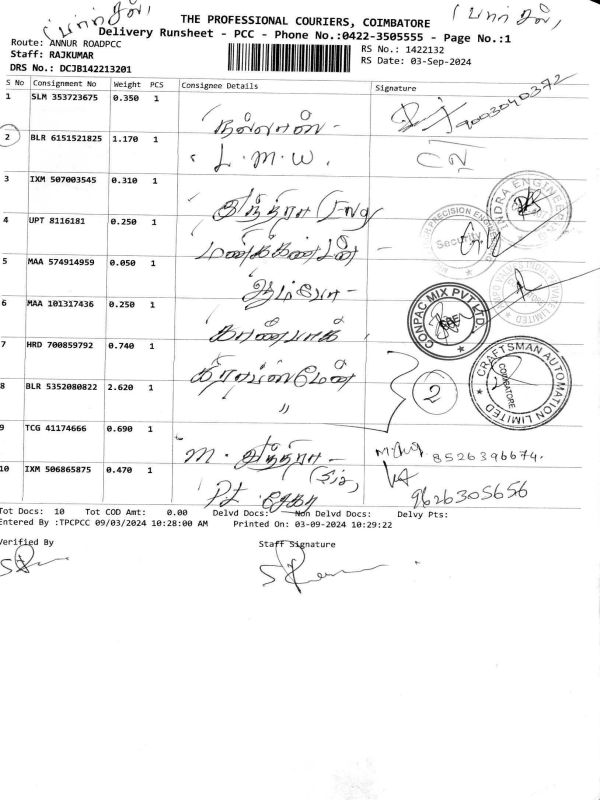 (பார்சல்)
(பார்சல்)
THE PROFESSIONAL COURIERS, COIMBATORE
Delivery Runsheet - PCC - Phone No.:0422-3505555 - Page No.:1
Route: ANNUR ROADPCC
RS No.: 1422132
Staff: RAJKUMAR
RS Date: 03-Sep-2024
DRS No.: DCJB142213201
S No Consignment No Weight PCS Consignee Details Signature
1 SLM 353723675 0.350 1 9003040372
2 BLR 6151521825 1.170 1 L.M.W.
3 IXM 507003545 0.310 1 இந்திரா Eng INDRA ENGINEER
4 UPT 8116181 0.250 1 மணிகண்டன் PRECISION ENGINE Security
5 MAA 574914959 0.050 1
6 MAA 101317436 0.250 1 கான்பாக் CONPAC MIX PVT LTD. CBE
7 HRD 700859792 0.740 1 கிராப்ஸ்மேன் 2 CRAFTSMAN AUTOMATION LIMITED COIMBATORE
8 BLR 5352080822 2.620 1 "
9 TCG 41174666 0.690 1 M. இந்திரா 8526396674.
10 IXM 506865875 0.470 1 Pt சேகர் 9626305656
Tot Docs: 10 Tot COD Amt: 0.00 Delvd Docs: Non Delvd Docs: Delvy Pts:
Entered By :TPCPCC 09/03/2024 10:28:00 AM Printed On: 03-09-2024 10:29:22
Verified By Staff Signature